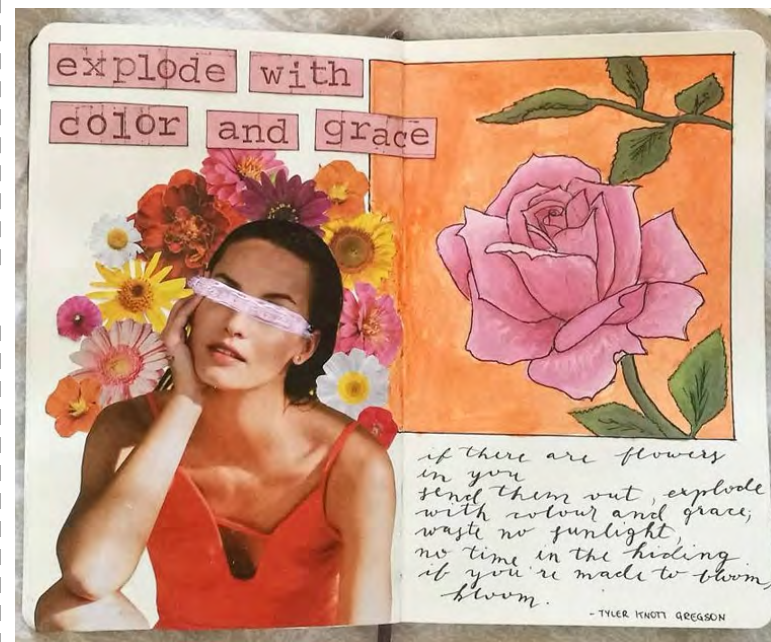 explode with
color and grace
if there are flowers
in you
send them out, explode
with colour and grace,
waste no sunlight,
no time in the hiding
if you're made to bloom,
bloom.
- TYLER KNOTT GREGSON